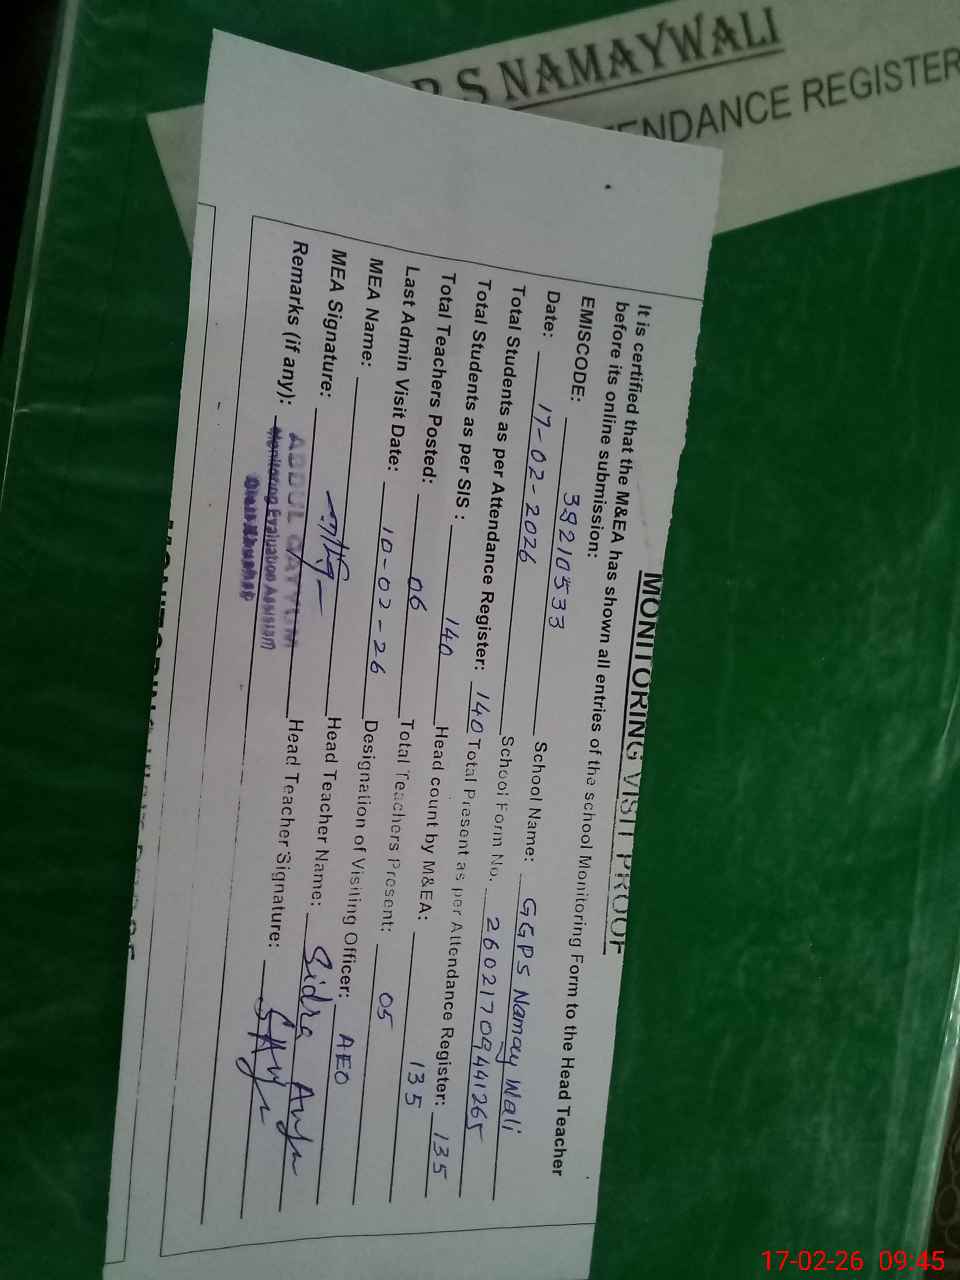 P S NAMAYWALI
TENDANCE REGISTER
MONITORING VISIT PROOF
It is certified that the M&EA has shown all entries of the school Monitoring Form to the Head Teacher
before its online submission:
EMISCODE: 38210533 School Name: GGPS Namay Wali
Date: 17-02-2026 School Form No. 26021709441265
Total Students as per Attendance Register: 140 Total Present as per Attendance Register: 135
Total Students as per SIS : 140 Head count by M&EA: 135
Total Teachers Posted: 06 Total Teachers Present: 05
Last Admin Visit Date: 10-02-26 Designation of Visiting Officer: AEO
MEA Name: Head Teacher Name: Sidra
MEA Signature: Head Teacher Signature:
Remarks (if any):
ABDUL QAYYUM
Monitoring Evaluation Assistant
17-02-26 09:45